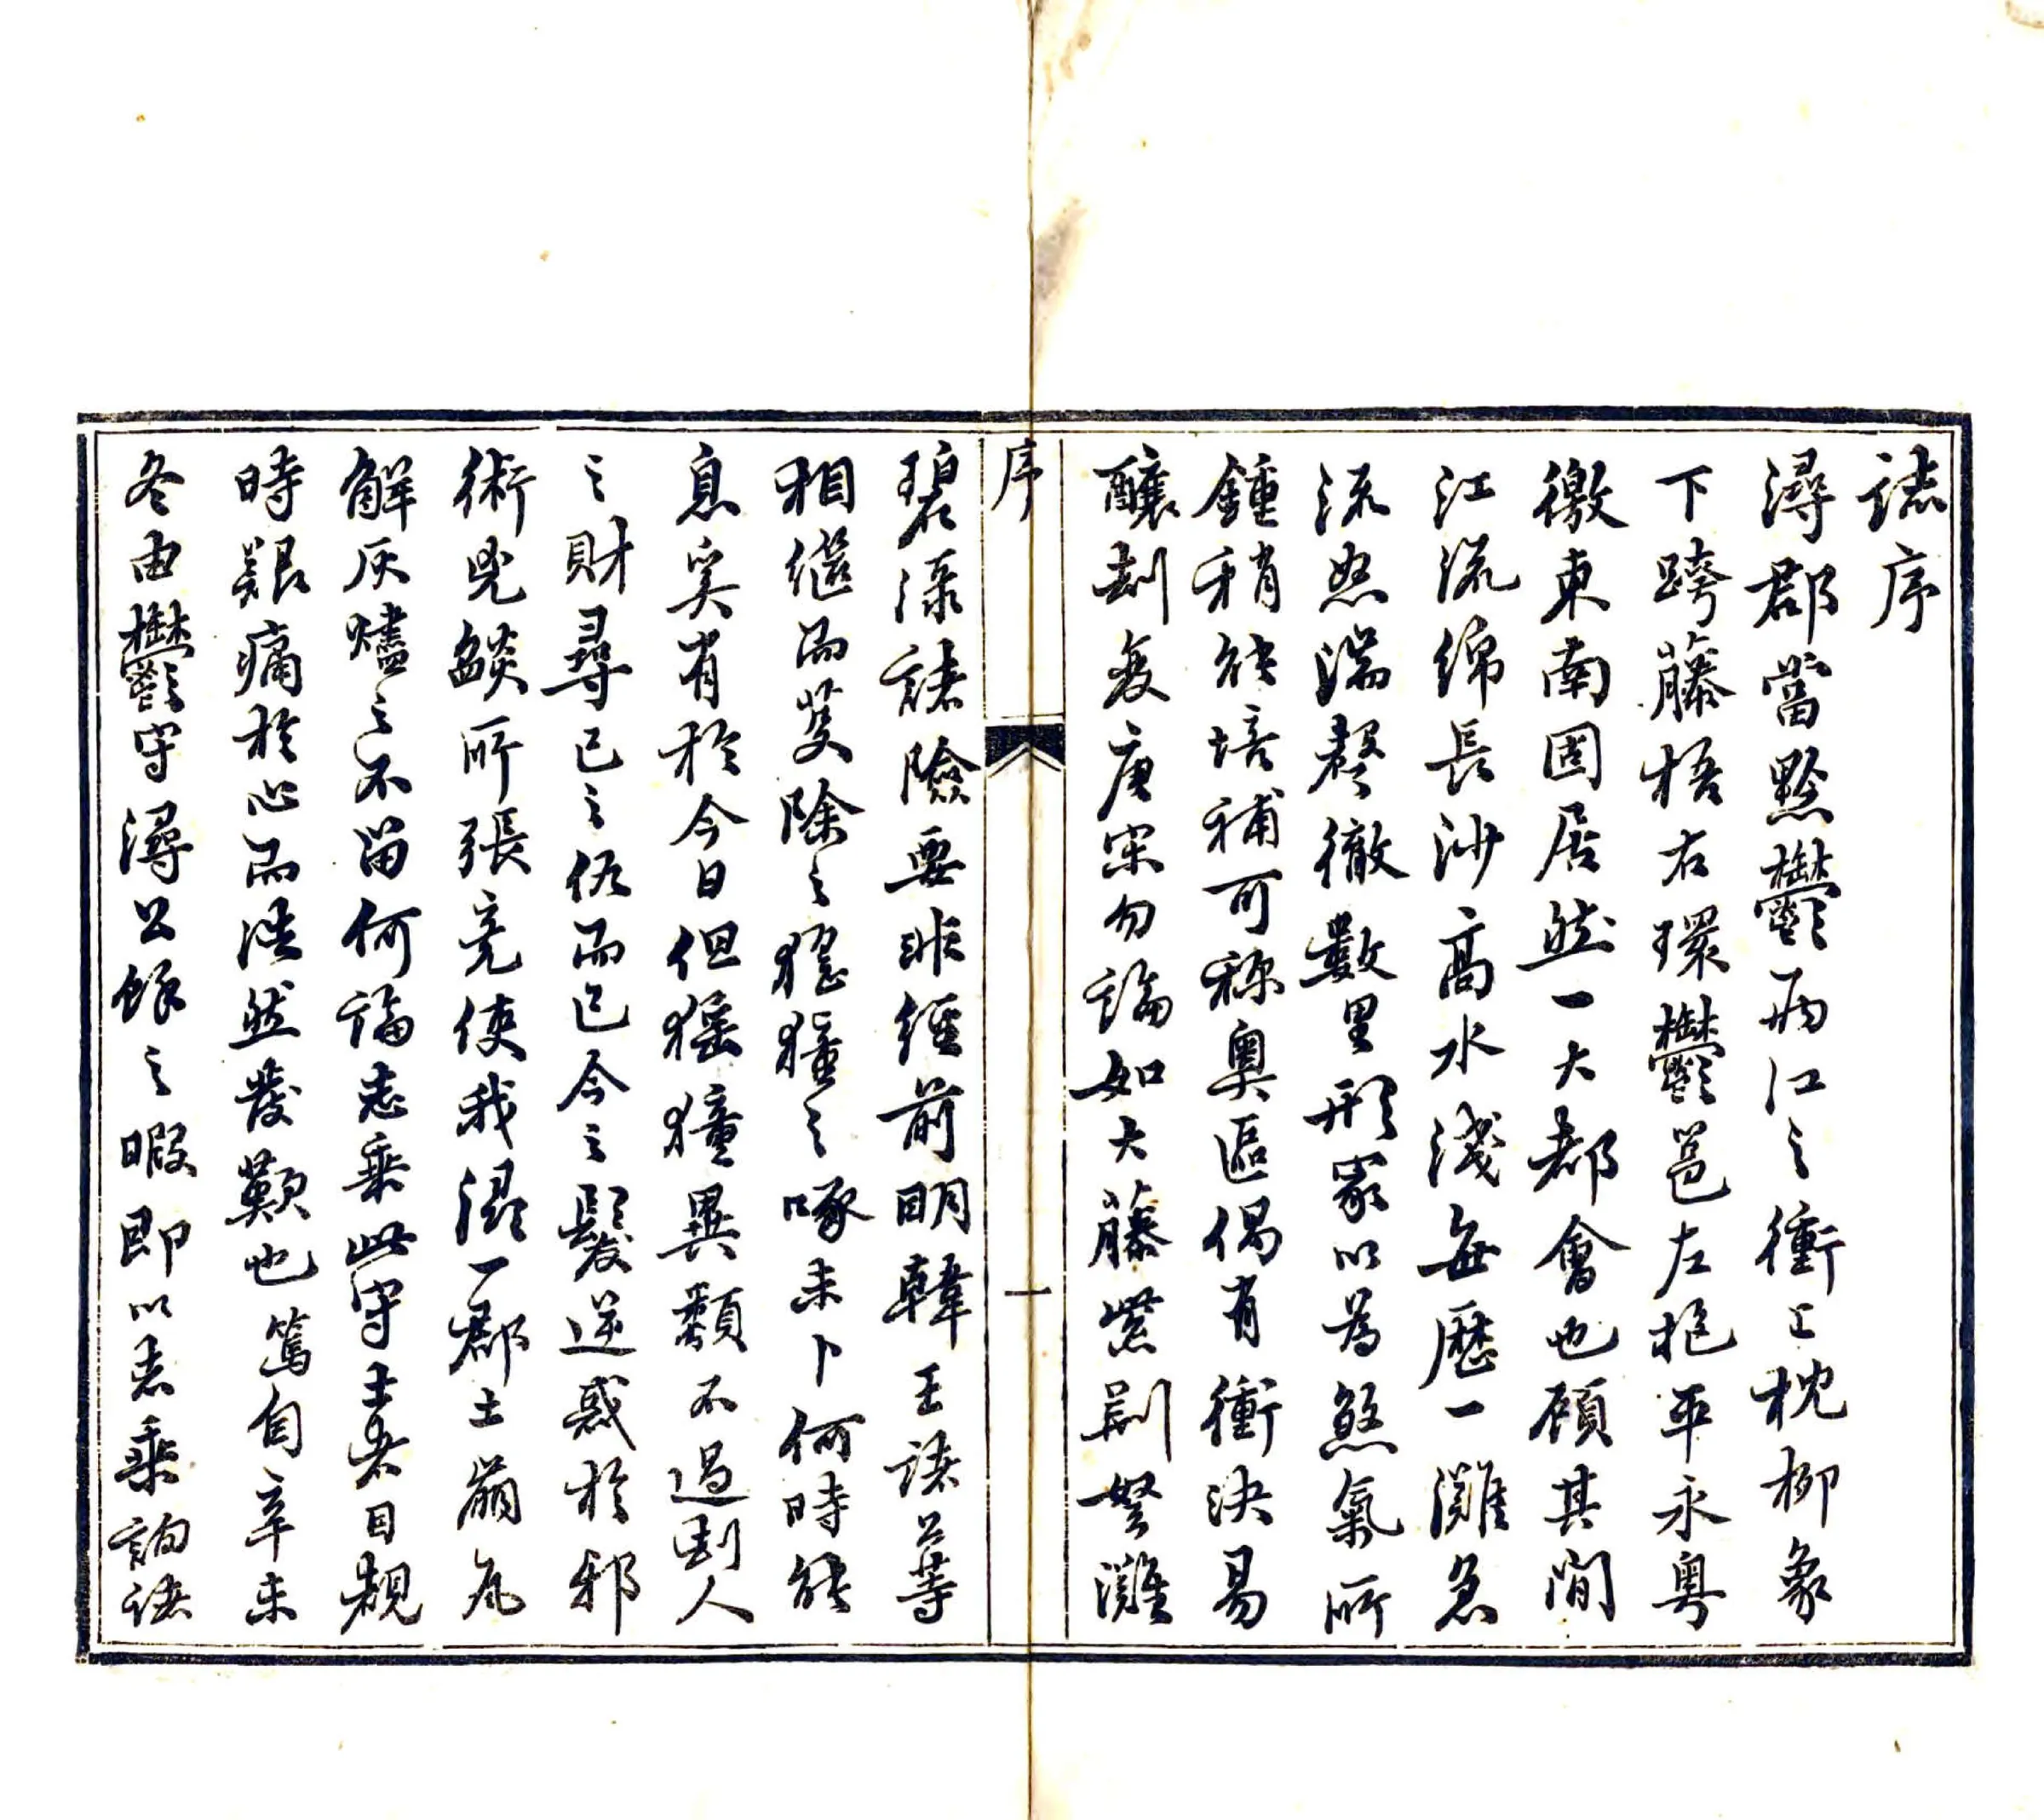 誌序
潯郡當黔鬱兩江之衝上枕柳象
下跨藤梧右環鬱邕左抱平永粤
徼東南固居然一大都會也顧其間
江流綿長沙高水淺每歷一灘急
流怒湍聲徹數里形家以爲煞氣所
鍾稍能培補可稱奧區偶有衝決易
釀刦灰唐宋勿論如大藤紫荊弩灘
碧灘諸險要非經前明韓王諸公等
相繼而芟除之猺獞之啄未卜何時能
息奚有於今日但猺獞異類不過劃人
之財尋已之仇而已今之髮逆惑於邪
術兇燄所張竟使我潯一郡土崩瓦
解灰燼之不留何論志乘此守土者目覩
時艱痛於心而浩然發歎也篤自辛未
冬由鬱守潯公餘之暇即以志乘詢諸
序
一